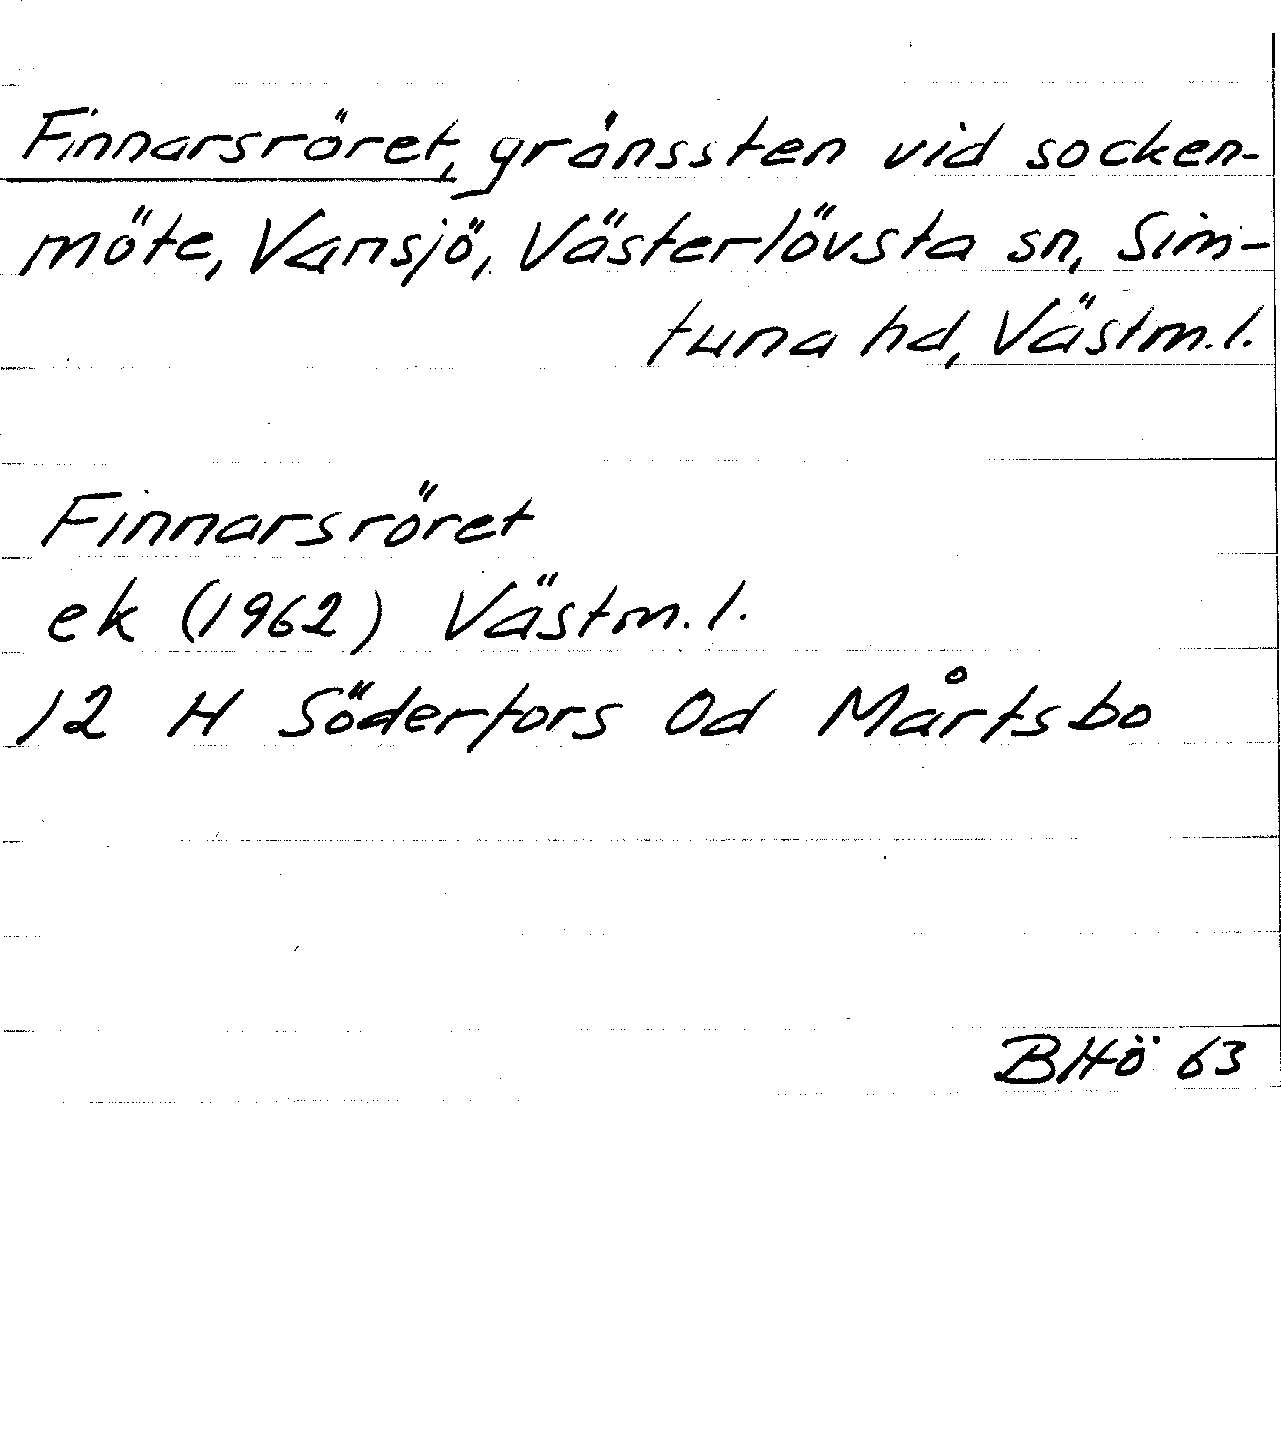 Finnarsröret, gränssten vid socken-
möte, Vansjö, Västerlövsta sn, Sim-
tuna hd, Västm.l.
Finnarsröret
ek (1962) Västm.l.
12 H Söderfors 0d Mårtsbo
BHö 63